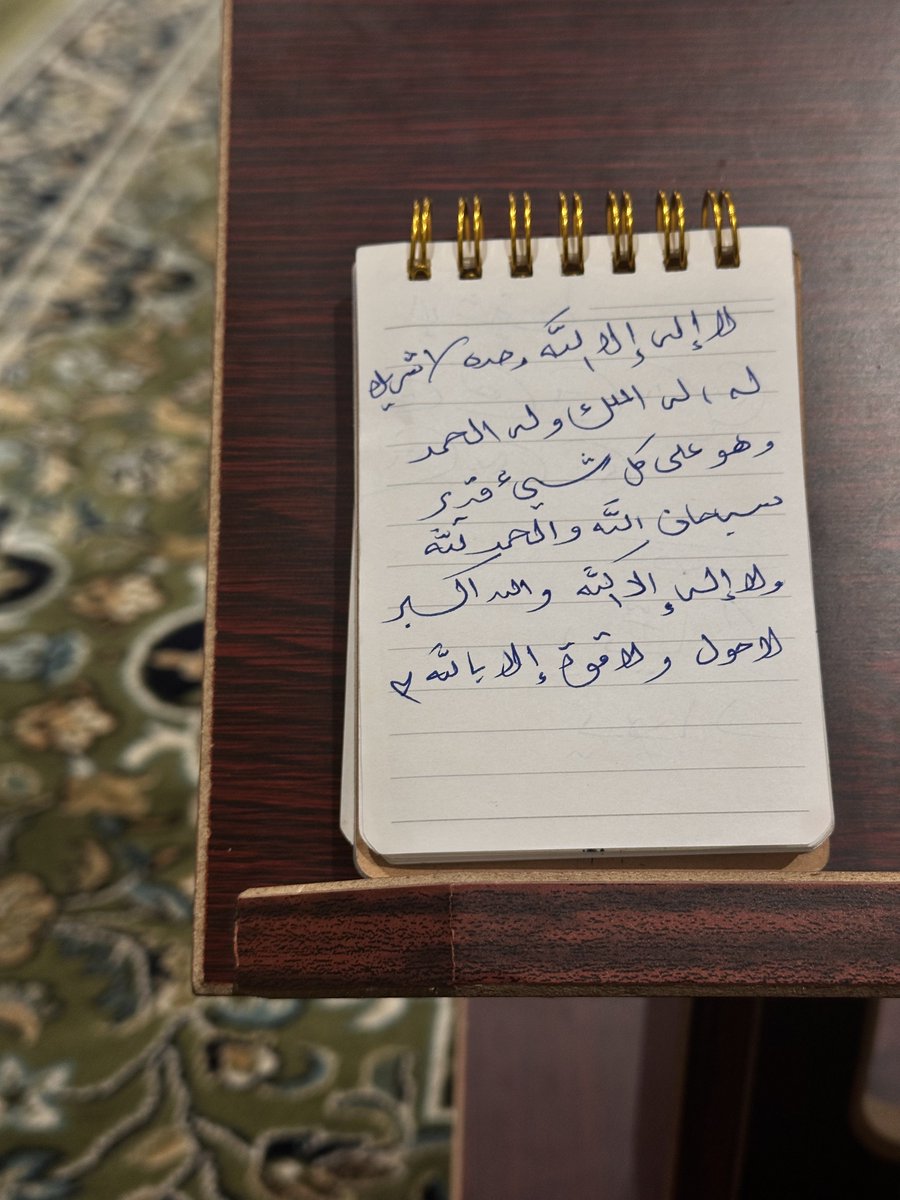 لا إله إلا الله وحده لا شريك
له ، له الملك وله الحمد
وهو على كل شيئ قدير
سبحان الله والحمد لله
ولا إله إلا الله والله أكبر
لا حول ولا قوة إلا بالله